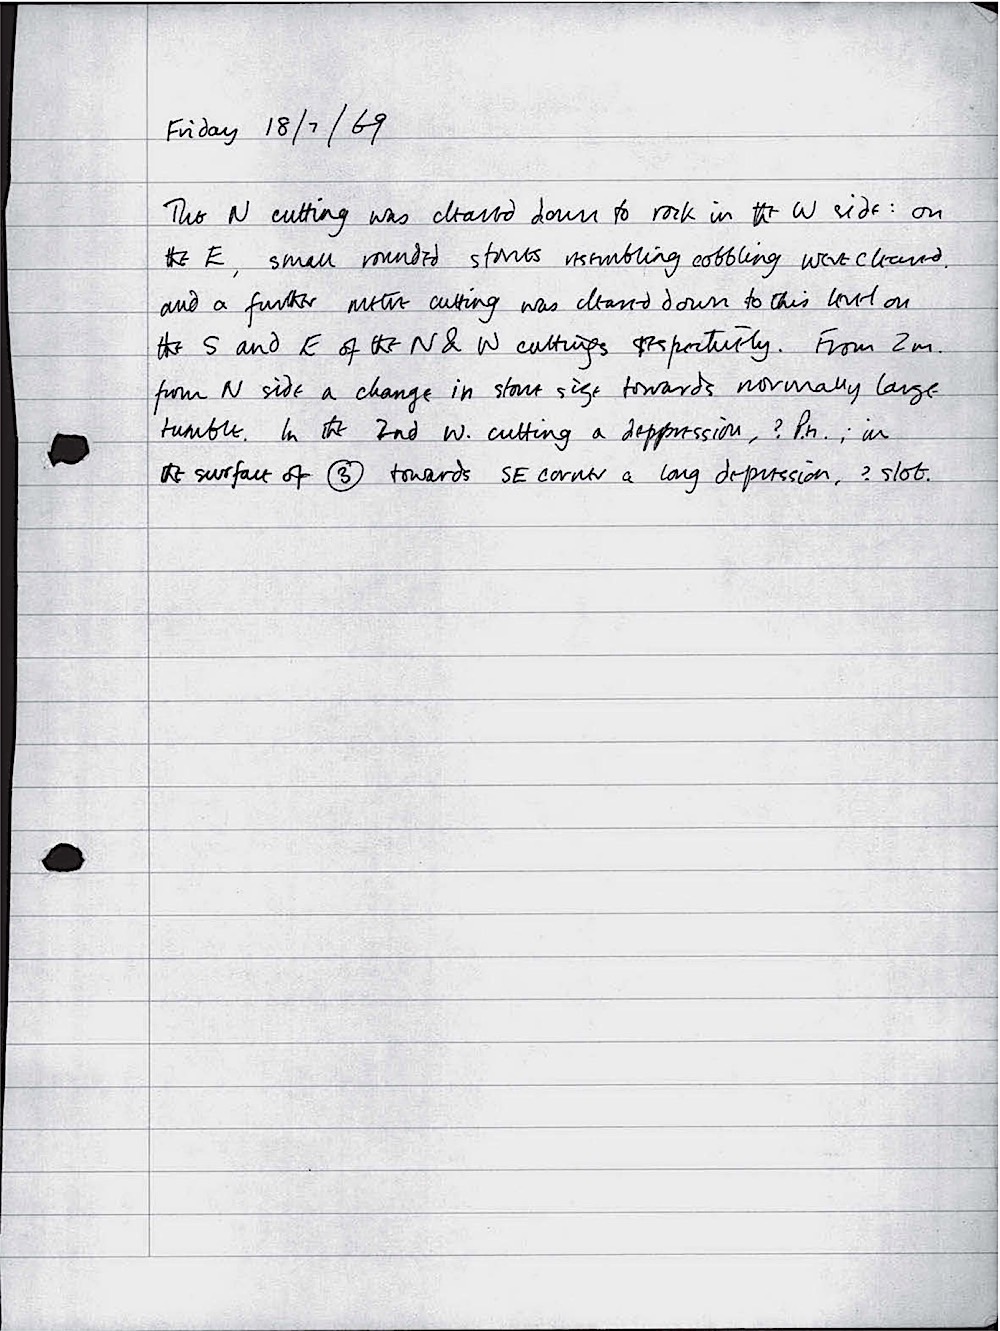 Friday 18/7/69
The N cutting was cleared down to rock in the W side: on
the E, small rounded stones resembling cobbling were cleared.
and a further metre cutting was cleared down to this level on
the S and E of the N & W cuttings respectively. From 2m.
from N side a change in stone size towards normally large
tumble. In the 2nd W. cutting a deppression, ? P.h. ; in
the surface of ③ towards SE corner a long depression, ? slot.